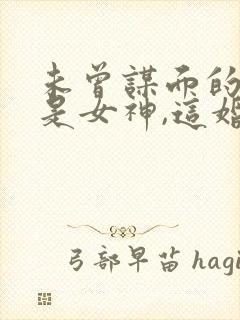 未曾謀面的
是女神,這婚
弓部早苗 hagi